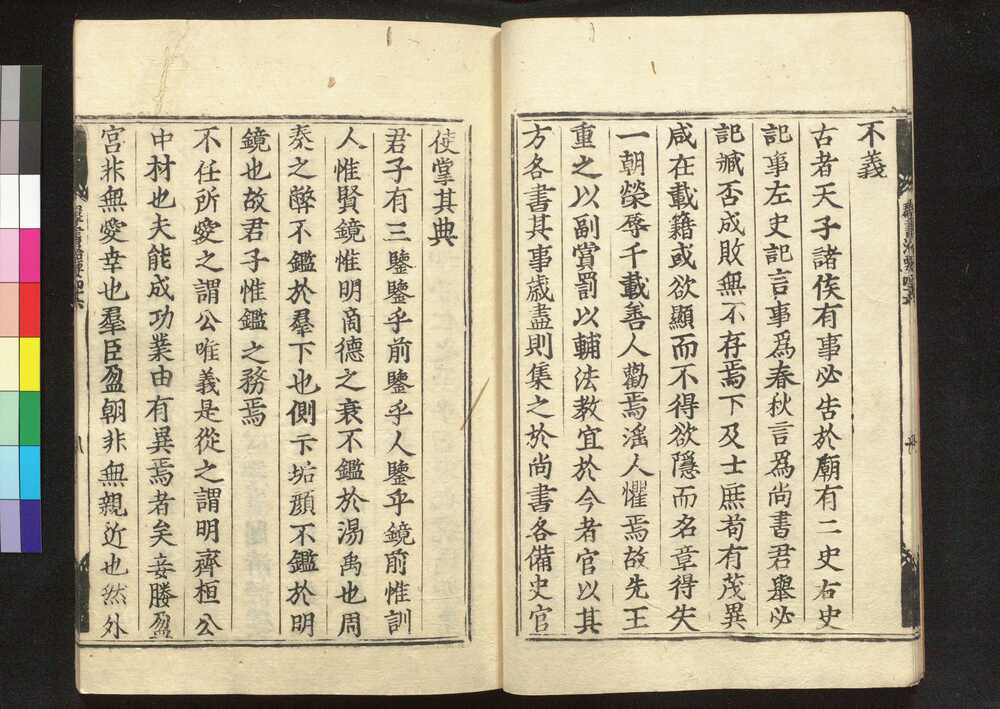 不義
古者天子諸侯有事必告於廟有二史右史
記事左史記言事爲春秋言爲尚書君舉必
記臧否成敗無不存焉下及士庶苟有茂異
咸在載籍或欲顯而不得欲隱而名章得失
一朝榮辱千載善人勸焉淫人懼焉故先王
重之以副賞罰以輔法教宜於今者官以其
方各書其事歲盡則集之於尚書各備史官
使掌其典
君子有三鑒鑒乎前鑒乎人鑒乎鏡前惟訓
人惟賢鏡惟明商德之衰不鑑於湯禹也周
秦之弊不鑑於羣下也側卞垢顏不鑑於明
鏡也故君子惟鑑之務焉
不任所愛之謂公唯義是從之謂明齊桓公
中材也夫能成功業由有異焉者矣妾媵盈
宮非無愛幸也羣臣盈朝非無親近也然外
羣書治要四十六
八